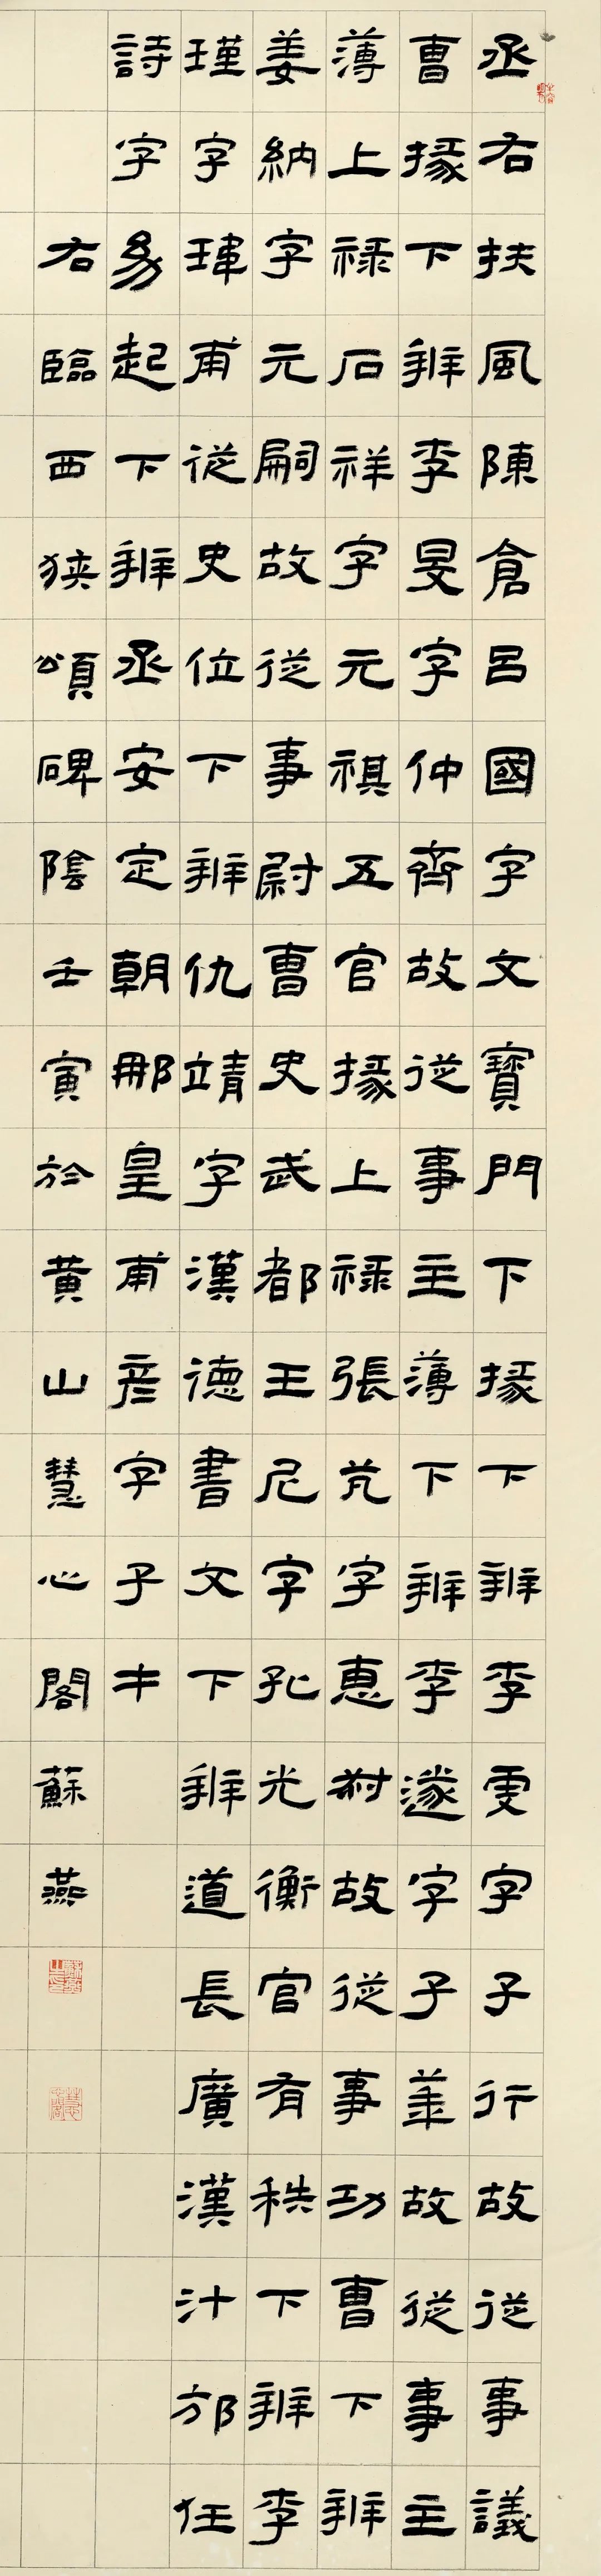 丞右扶風陳倉呂國字文寶門下掾下辨李雯字子行故從事議
曹掾下辨李旻字仲齊故從事主薄下辨李遂字子華故從事主
薄上祿石祥字元祺五官掾上祿張亢字惠叔故從事功曹下辨
姜納字元嗣故從事尉曹史武都王尼字孔光衡官有秩下辨李
瑾字瑋甫從史位下辨仇靖字漢德書文下辨道長廣漢汁邡任
詩字幼起下辨丞安定朝那皇甫彥字子才
右臨西狹頌碑陰壬寅於黃山慧心閣蘇燕